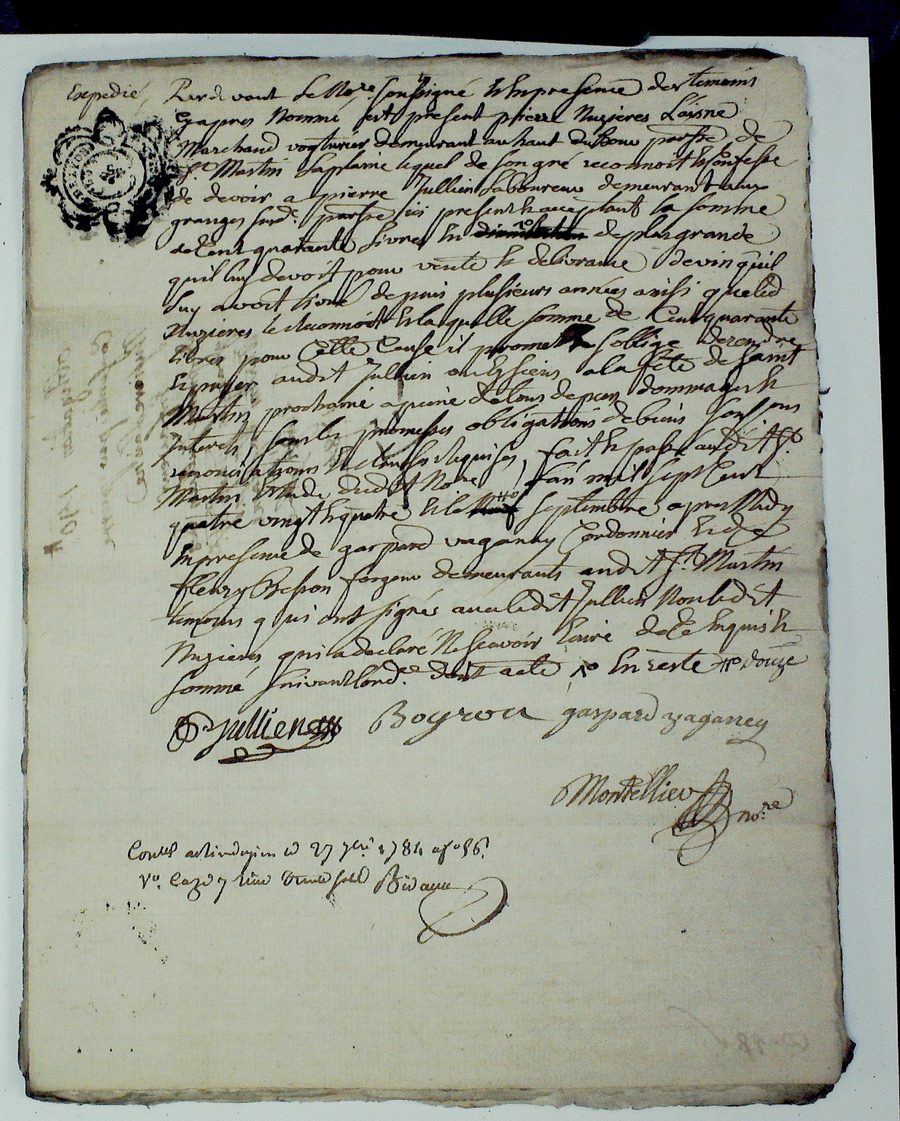 Expedié
Pardevant Le No.re soussigné & En presence des temoins
cy apres Nommé est present pierre Nuzieres L'aisné
Marchand voyturier demeurant au haut du parsse de
St. Martin laplaine lequel de son gré reconnoit & Confesse
de devoir a pierre Jullien Laboureur demeurant aux
granges susd. parsse ici present & acceptant la somme
de Cent quarante Livres En de plus grande
quil luy devoit pour vente & delivrance de vin quil
luy avoit livré depuis plusieurs années ainsi que led.
Nuzieres le Reconnoit & laquelle somme de Cent quarante
livres pour Cette Cause il promet & soblige de rendre
& payer audit Jullien ou Es siens a la fête de Saint
Martin prochaine a peine de tous depens dommages &
Interets, sous les promesses obligations de biens
renonciations & Clauses Requises, fait & passé audit St.
Martin Etude dudit No.re, L'an mil sept Cent
quatre vingt quatre & le septembre apres Midy
En presence de gaspard vaganey Cordonnier & de
fleury Besson forgeur demeurants audit St. Martin
temoins qui ont signés avec ledit Jullien Non ledit
Nuzieres qui a declaré Ne scavoir faire de Ce Enquis &
sommé suivant Lord.ce dont acte En reste douze
P. Jullien Boyron gaspard vaganey
Montellier no.re
27 7bre 1784